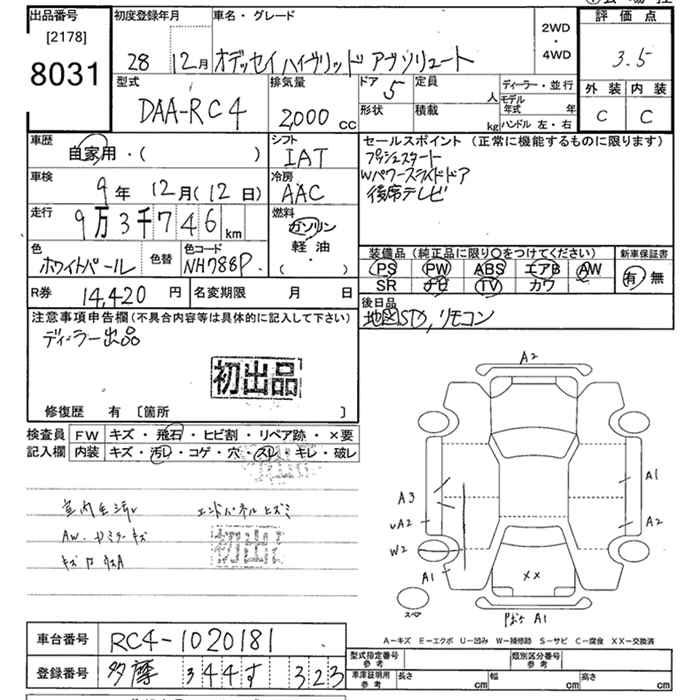 出品番号 初度登録年月 車名・グレード 評価点
[2178]
8031
28 12月 オデッセイ ハイブリッド アブソリュート
2WD
・
4WD
3.5
型式 排気量 ドア 5 定員 人 ディーラー・並行 外装 内装
DAA-RC4 2,000 cc 形状 積載 kg モデル年式 年 ハンドル 左・右 C C
車歴 シフト セールスポイント (正常に機能するものに限ります)
自家用・( ) IAT プッシュスタート
車検 冷房 Wパワースライドドア
9年 12月(12日) AAC 後席テレビ
走行 9万3千746km 燃料 ガソリン・軽油・( )
色 ホワイトパール 色替 色コード NH788P
装備品 (純正品に限り○をつけてください) 新車保証書
PS PW ABS エアB AW 有・無
SR ナビ TV カワ
R券 14,420円 名変期限 月 日 後日品
地図SD,リモコン
注意事項申告欄(不具合内容等は具体的に記入して下さい)
ディーラー出品
初出品
修復歴 有 [箇所 ]
検査員 FW キズ・飛石・ヒビ割・リペア跡・×要
記入欄 内装 キズ・汚レ・コゲ・穴・スレ・キレ・破レ
エンドパネル ヒズミ
初出
A2
A1
A3
A2
W2
A1
A2
××
スペアー
A1
A−キズ E−エクボ U−凹み W−補修跡 S−サビ C−腐食 XX−交換済
車台番号 RC4-1020181 型式指定番号 参考 類別区分番号 参考
登録番号 多摩 344 す 323 車庫証明用 参考 長さ cm 幅 cm 高さ cm